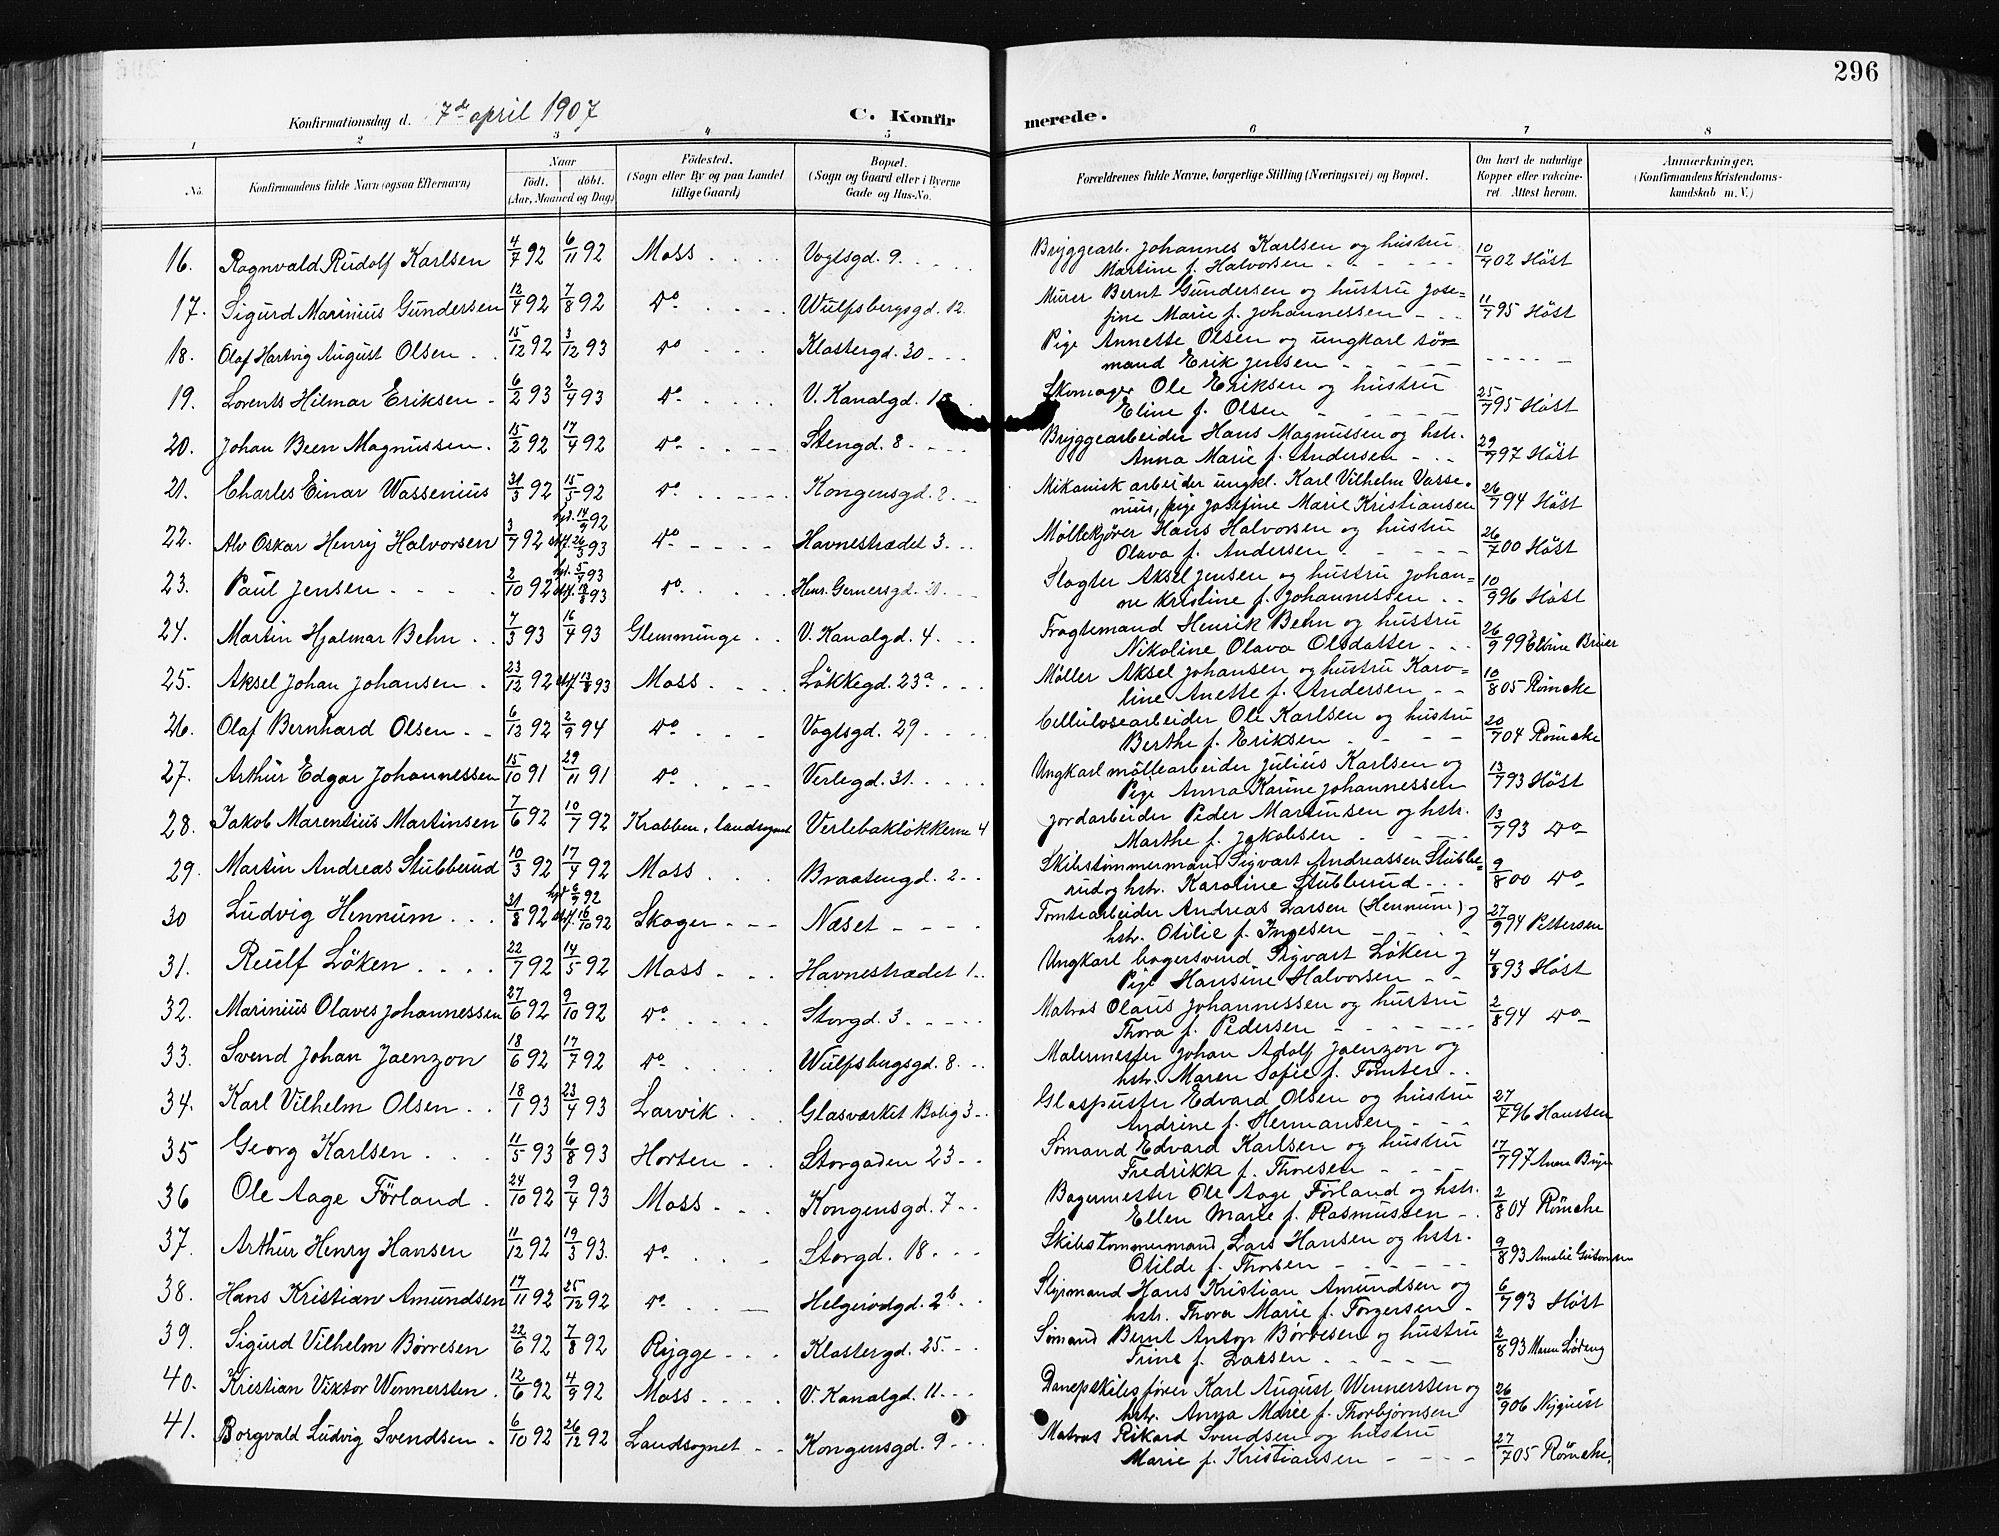 296
Konfirmationsdag d. 7de april 1907
C. Konfirmerede.
1 2 3 4 5 6 7 8
No. Konfirmandens fulde Navn (ogsaa Efternavn) Naar Födt. döbt. (Aar, Maaned og Dag) Födested. (Sogn eller By og paa Landet tillige Gaard) Bopæl. (Sogn og Gaard eller i Byerne Gade og Hus-No. Forældrenes fulde Navne, borgerlige Stilling (Næringsvei) og Bopæl. Om havt de naturlige Kopper eller vaccineret. Attest herom. Anmærkninger. (Konfirmandens Kristendomskundskab m. V.)
16. Ragnvald Rudolf Karlsen 4/7 92 6/11 92 Moss Vogtsgd. 9. Bryggearb. Johannes Karlsen og hustru 10/7 02 Höst
Martine f. Halvorsen
17. Sigurd Marinius Gundersen 12/4 92 7/8 92 do Wulfsbergsgd. 12. Murer Bernt Gundersen og hustru Jose= 11/7 95 Höst
fine Marie f. Johannessen
18. Olaf Hartvig August Olsen 15/12 92 3/12 93 do Klostergd. 30 Pige Annette Olsen og ungkarl sö=
mand Erik Jensen
19. Lorents Hilmar Eriksen 6/2 93 2/4 93 do V. Kanalgd. Skomager Ole Eriksen og hustru 25/7 95 Höst
Eline f. Olsen
20. Johan Been Magnussen 15/2 92 17/4 92 do Stengd. 8 Bryggearbeider Hans Magnussen og hstr. 29/7 97 Höst
Anna Marie f. Andersen
21. Charles Einar Wassenius 31/3 92 15/5 92 do Kongensgd. 2 Mikanisk arbeider ungkl. Karl Vilhelm Vasse= 26/7 94 Höst
nius, pige Josefine Marie Kristiansen
22. Alv Oskar Henry Halvorsen 3/7 92 hjd. 14/9 92 stf. 26/3 93 do Havnestrædet 3 Möllekjörer Hans Halvorsen og hustru 26/7 00 Höst
Olava f. Andersen
23. Paul Jensen 2/10 92 hjd. 5/4 93 do Henr. Gernersgd. Slagter Aksel Jensen og hustru Johan= 10/9 96 Höst
ne Kristine f. Johannessen
24. Martin Hjalmar Behn 7/3 93 16/4 93 Glemminge V. Kanalgd. 4 Fragtemand Henrik Behn og hustru 26/9 99
Nikoline Olava Olsdatter
25. Aksel Johan Johansen 23/12 92 stf. 13/8 93 Moss Lökkegd. 23a Möller Aksel Johansen og hustru Karo= 10/8 05 Römcke
line Anette f. Andersen
26. Olaf Bernhard Olsen 6/12 92 2/9 94 do Vogtsgd. 29 Cellulosearbeider Ole Karlsen og hustru 20/7 04 Römcke
Berthe f. Eriksen
27. Arthur Edgar Johannessen 15/10 91 29/11 91 do Verlegd. 31. Ungkarl möllearbeider Julius Karlsen og 13/7 93 Höst
Pige Anna Karine Johannessen
28. Jakob Marentius Martinsen 7/6 92 10/7 92 Krabben, landsognet Verlebakløkkerne 4 Jordarbeider Peder Martinsen og hstr. 13/7 93 do
Marthe f. Jakobsen
29. Martin Andreas Stubberud 10/3 92 17/4 92 Moss Braatengd. 2 Skibstømmermand Sigvart Andreassen Stubbe= 9/8 00 do
rud og hstr. Karoline Stubberud
30 Ludvig Hennum 31/8 92 hjd. 6/9 92 stf. 16/10 92 Skoger Næset Tomtearbeider Andreas Larsen (Hennum) og 27/9 94 Pettersen
hstr. Otilie f. Ingesen
31. Reulf Löken 22/7 92 14/5 92 Moss Havnestrædet 1 Ungkarl bagersvend Sigvart Löken og 4/8 93 Höst
Pige Hansine Halvorsen
32. Marinius Olaves Johannessen 27/6 92 9/10 92 do Storgd. 3 Matros Olaus Johannessen og hustru 2/8 94 do
Thora f. Pedersen
33. Svend Johan Jaenzon 18/6 92 17/7 92 do Wulfsbergsgd. 8 Malermester Johan Adolf Jaenzon og
hstr. Maren Sofie f. Tomter
34. Karl Vilhelm Olsen 18/1 93 23/4 93 Larvik Glasværket Bolig 3 Glaspuster Edvard Olsen og hustru 27/7 96 Hansten
Andrine f. Hermansen
35 Georg Karlsen 11/5 93 6/8 93 Horten Storgaden 23 Sømand Edvard Karlsen og hustru 17/7 97 Anna
Fredrikke f. Thoresen
36 Ole Aage Förland 24/10 92 9/4 93 Moss Kongensgd. 7 Bagermester Ole Aage Førland og hstr. 2/8 04 Römcke
Ellen Marie f. Rasmussen
37. Arthur Henry Hansen 11/12 92 19/3 93. do Storgd. 18 Skibstømmermand Lars Hansen og hstr. 9/8 93 Amalie
Otilde f. Thorsen
38. Hans Kristian Amundsen 17/11 92 25/12 92 do Helgerødgd. 2b Styrmand Hans Kristian Amundsen og 6/7 93 Höst
hstr. Thora Marie f. Torgersen
39. Sigurd Vilhelm Børresen 22/6 92 7/8 92 Rygge Klostergd. 25 Sømand Bernt Anton Børresen og hustru 2/8 93 Maren
Trine f. Larsen
40. Kristian Viktor Wennersten 12/6 92 4/9 92 Moss V. Kanalgd. 11 Dampskibsfører Karl August Wennersten og 26/9 06 Nyquist
hstr. Anna Marie f. Thorbjørnsen
41. Borgvald Ludvig Svendsen 6/10 92 26/12 92 Landsognet Kongensgd. 9 Matros Rikard Svendsen og hustru 27/7 05 Römcke.
Marie f. Kristiansen